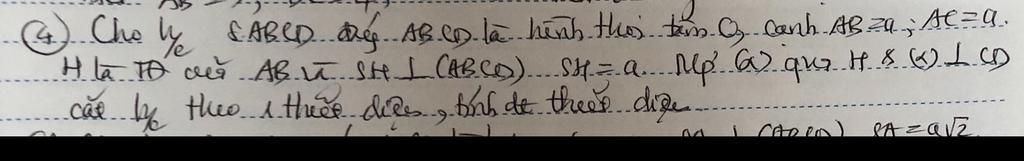 ④ Cho h/c SABCD đáy ABCD là hình thoi tâm O, cạnh AB = a; AC = a.
H là TĐ của AB và SH ⊥ (ABCD) SH = a. Mp' (α) qua H & (α) ⊥ CD
cắt h/c theo 1 thiết diện, tính dt thiết diện
⊥ (ABCD) SA = a√2